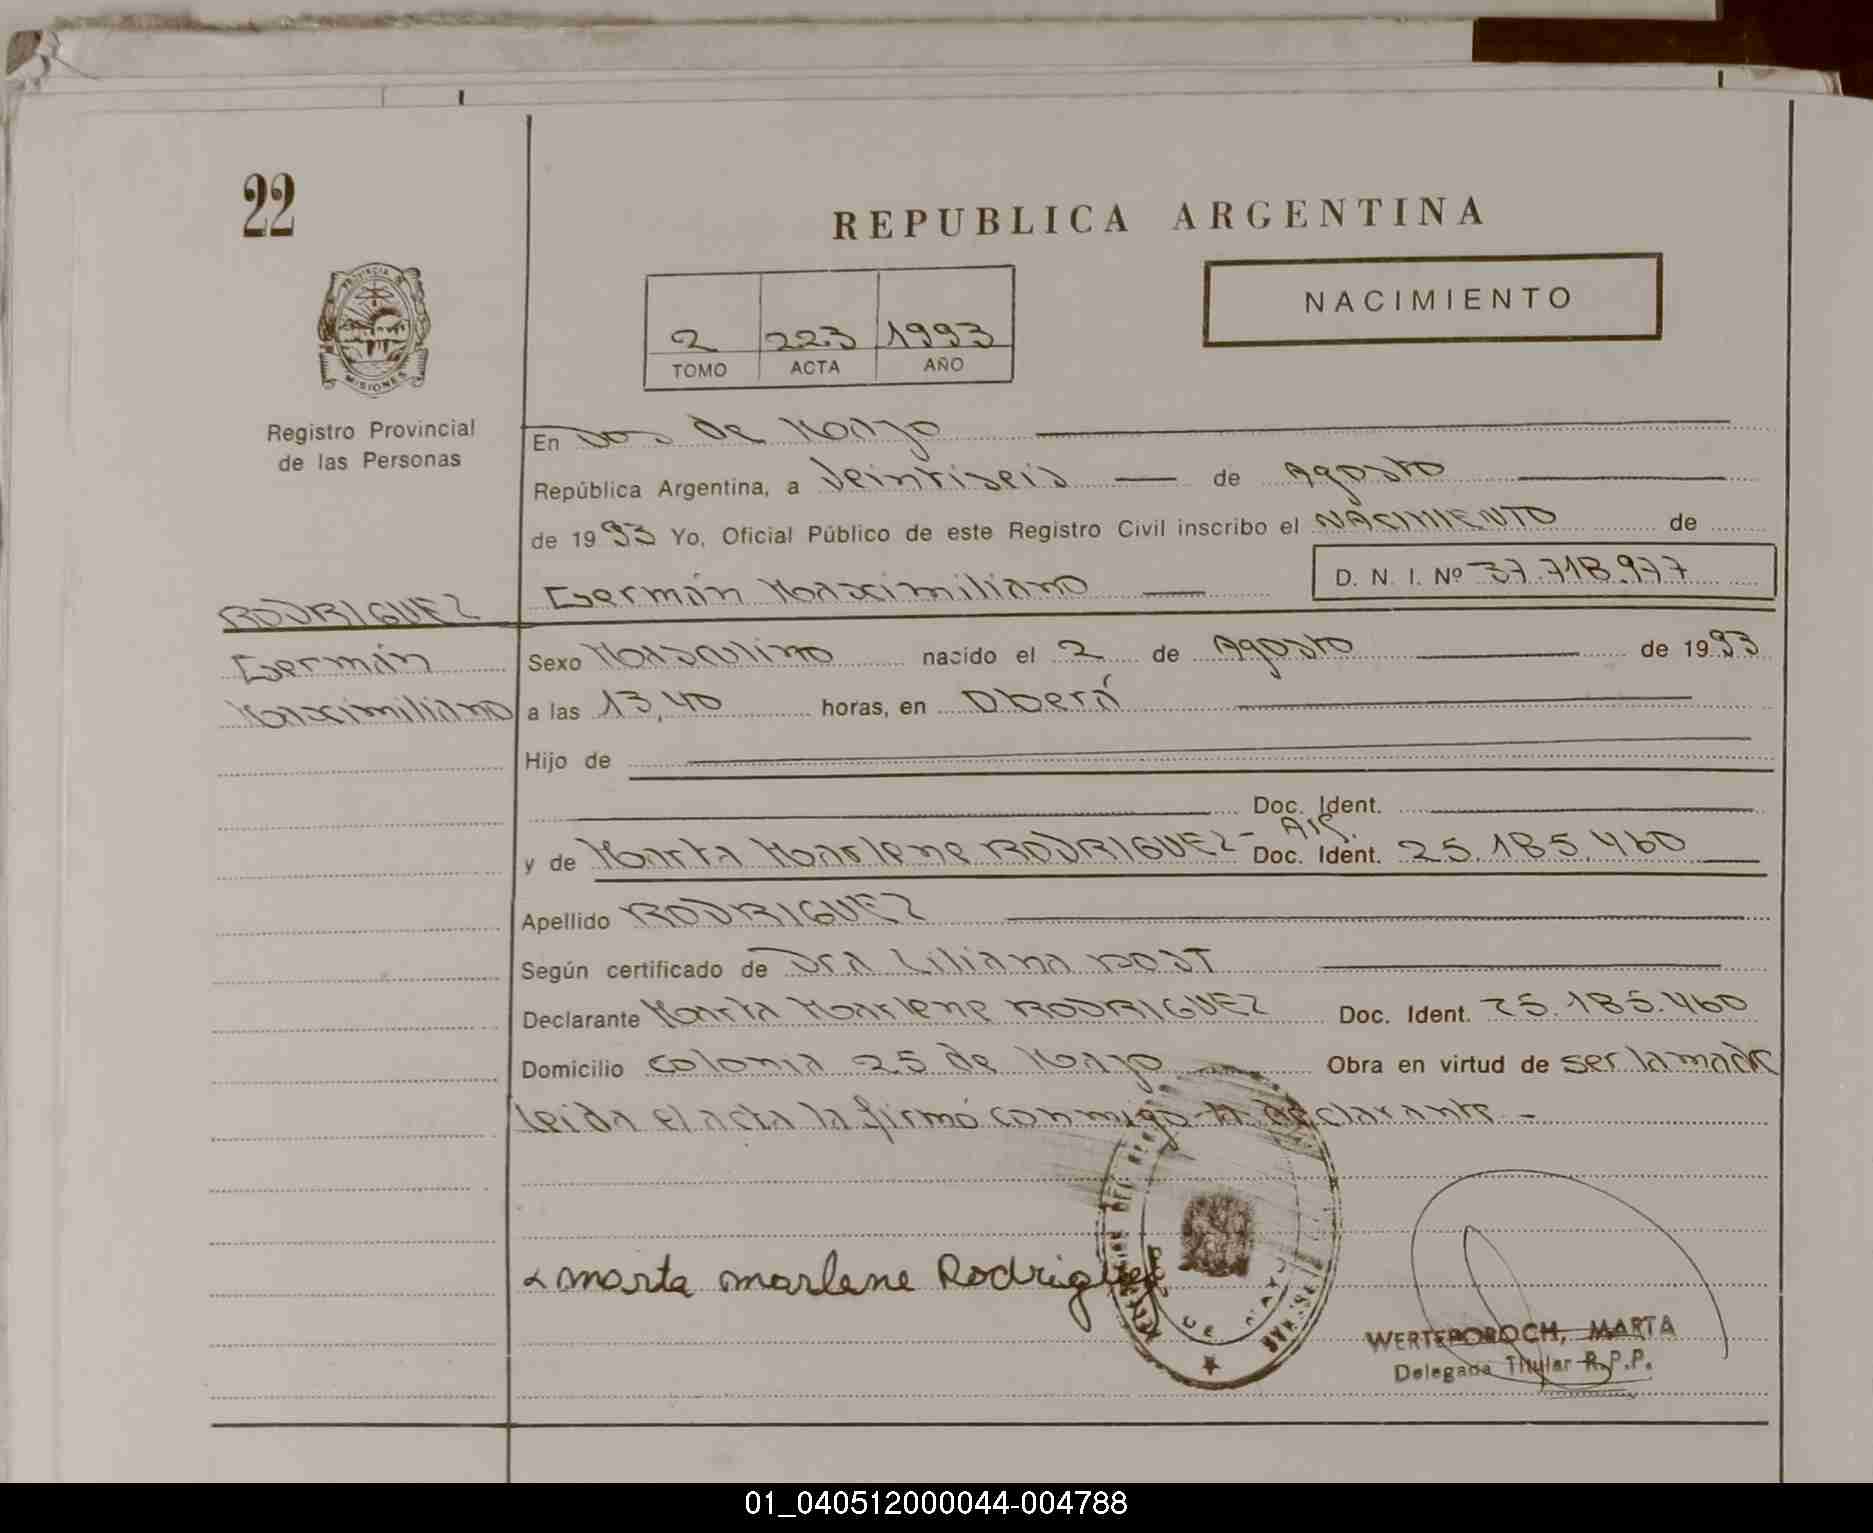 22
REPUBLICA ARGENTINA
NACIMIENTO
2 223 1993
TOMO ACTA AÑO
PROVINCIA DE
MISIONES
Registro Provincial
de las Personas
En Dos de Mayo
República Argentina, a Veintiseis de Agosto
de 1993 Yo, Oficial Público de este Registro Civil inscribo el NACIMIENTO de
Germán Maximiliano D. N. I. Nº 37.718.977
RODRIGUEZ
Germán
Maximiliano
Sexo Masculino nacido el 2 de Agosto de 1993
a las 13,40 horas, en Oberá
Hijo de
Doc. Ident.
y de Marta Marlene RODRIGUEZ - Arg. Doc. Ident. 25.185.460
Apellido RODRIGUEZ
Según certificado de Dra Liliana ROST
Declarante Marta Marlene RODRIGUEZ Doc. Ident. 25.185.460
Domicilio Colonia 25 de Mayo Obra en virtud de ser la madre
leida el acta la firmó conmigo la declarante -
Marta marlene Rodriguez
WERTEPOROCH, MARTA
Delegada Titular R.P.P.
01_040512000044-004788